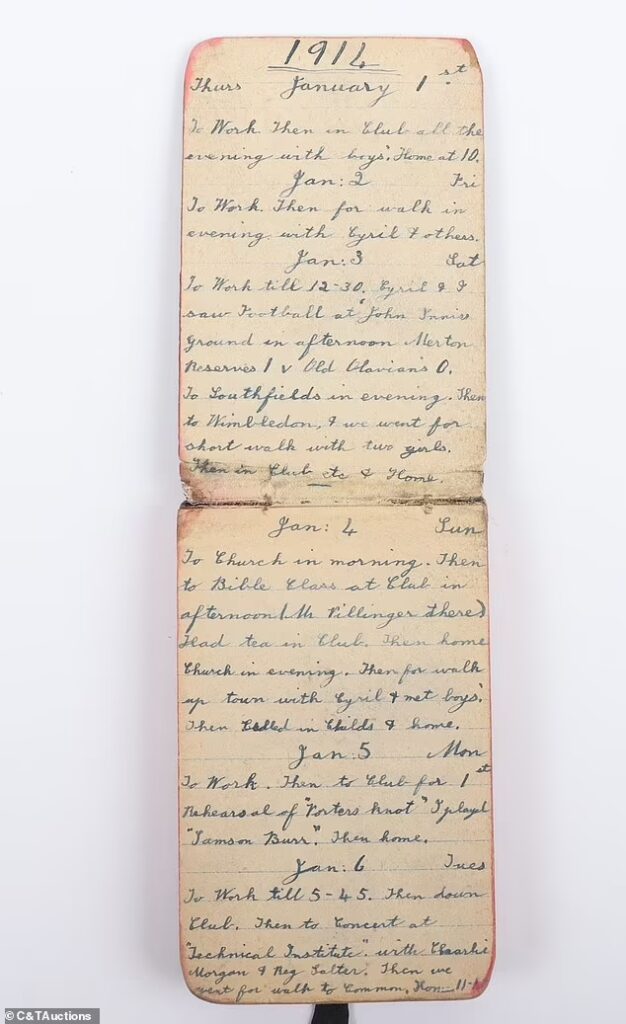 1914
Thurs January 1st
To Work. Then in Club all the
evening with boys'. Home at 10.
Jan: 2 Fri
To Work. Then for walk in
evening with Cyril & others.
Jan: 3 Sat
To Work till 12-30. Cyril & I
saw Football at "John Innis
ground in afternoon Merton
Reserves 1 v Old Olavians 0.
To Southfields in evening. Then
to Wimbledon, & we went for
short walk with two girls.
Then in Club etc & Home.
Jan: 4 Sun
To Church in morning. Then
to Bible Class at Club in
afternoon (Mr Pillinger there)
Had tea in Club. Then home
Church in evening. Then for walk
up town with Cyril & met boys'.
Then Called in Childs & home.
Jan: 5 Mon
To Work. Then to Club for 1st
Rehearsal of "Porters Knot" I played
"Samson Burr". Then home.
Jan: 6 Tues
To Work till 5-45. Then down
Club. Then to Concert at
"Technical Institute". with Charlie
Morgan & Reg Salter. Then we
went for walk to Common. Home
© C&TAuctions